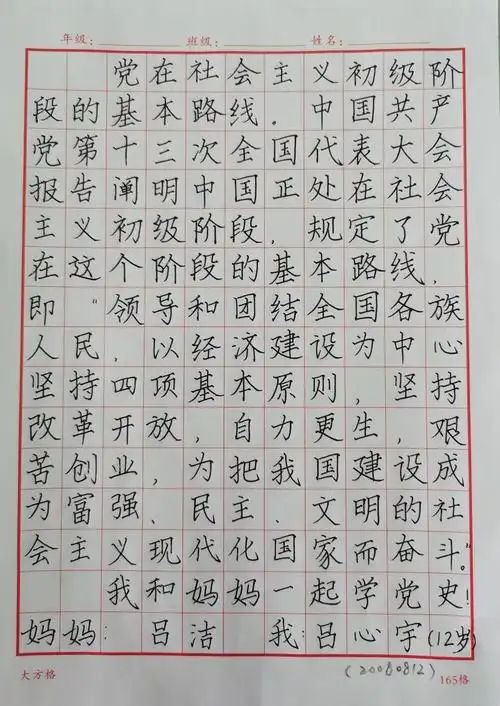 年级： 班级： 姓名：
党在社会主义初级阶
段的基本路线。中国共产
党第十三次全国代表大会
报告阐明中国正处在社会
主义初级阶段，规定了党
在这个阶段的基本路线，
即“领导和团结全国各族
人民，以经济建设为中心
坚持四项基本原则，坚持
改革开放，自力更生，艰
苦创业，为把我国建设成
为富强、民主、文明的社
会主义现代化国家而奋斗。”
我和妈妈一起学党史！
妈妈：吕洁 我：吕心宇（12岁）
大方格 （20080812） 165格